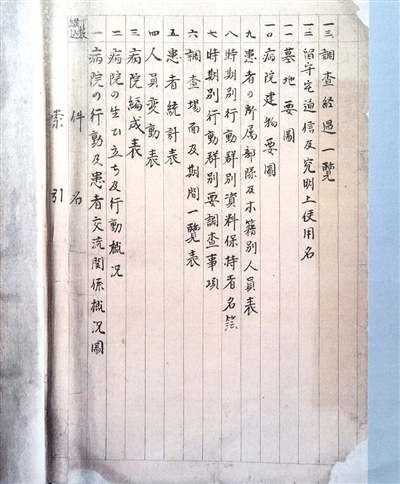 索引
件名
一 病院の行動及患者交流関係概況圖
二 病院の生ひ立ち及行動概况
三 病院編成表
四 人員変動表
五 患者統計表
六 調查場面及期间一覽表
七 時期別行動群別要調查事項
八 時期別行動群別資料保持者名簿
九 患者の所属部隊及本籍別人員表
一〇 病院建物要圖
一一 墓地要圖
一二 留守宅通信及究明上使用名
一三 調查経過一覽